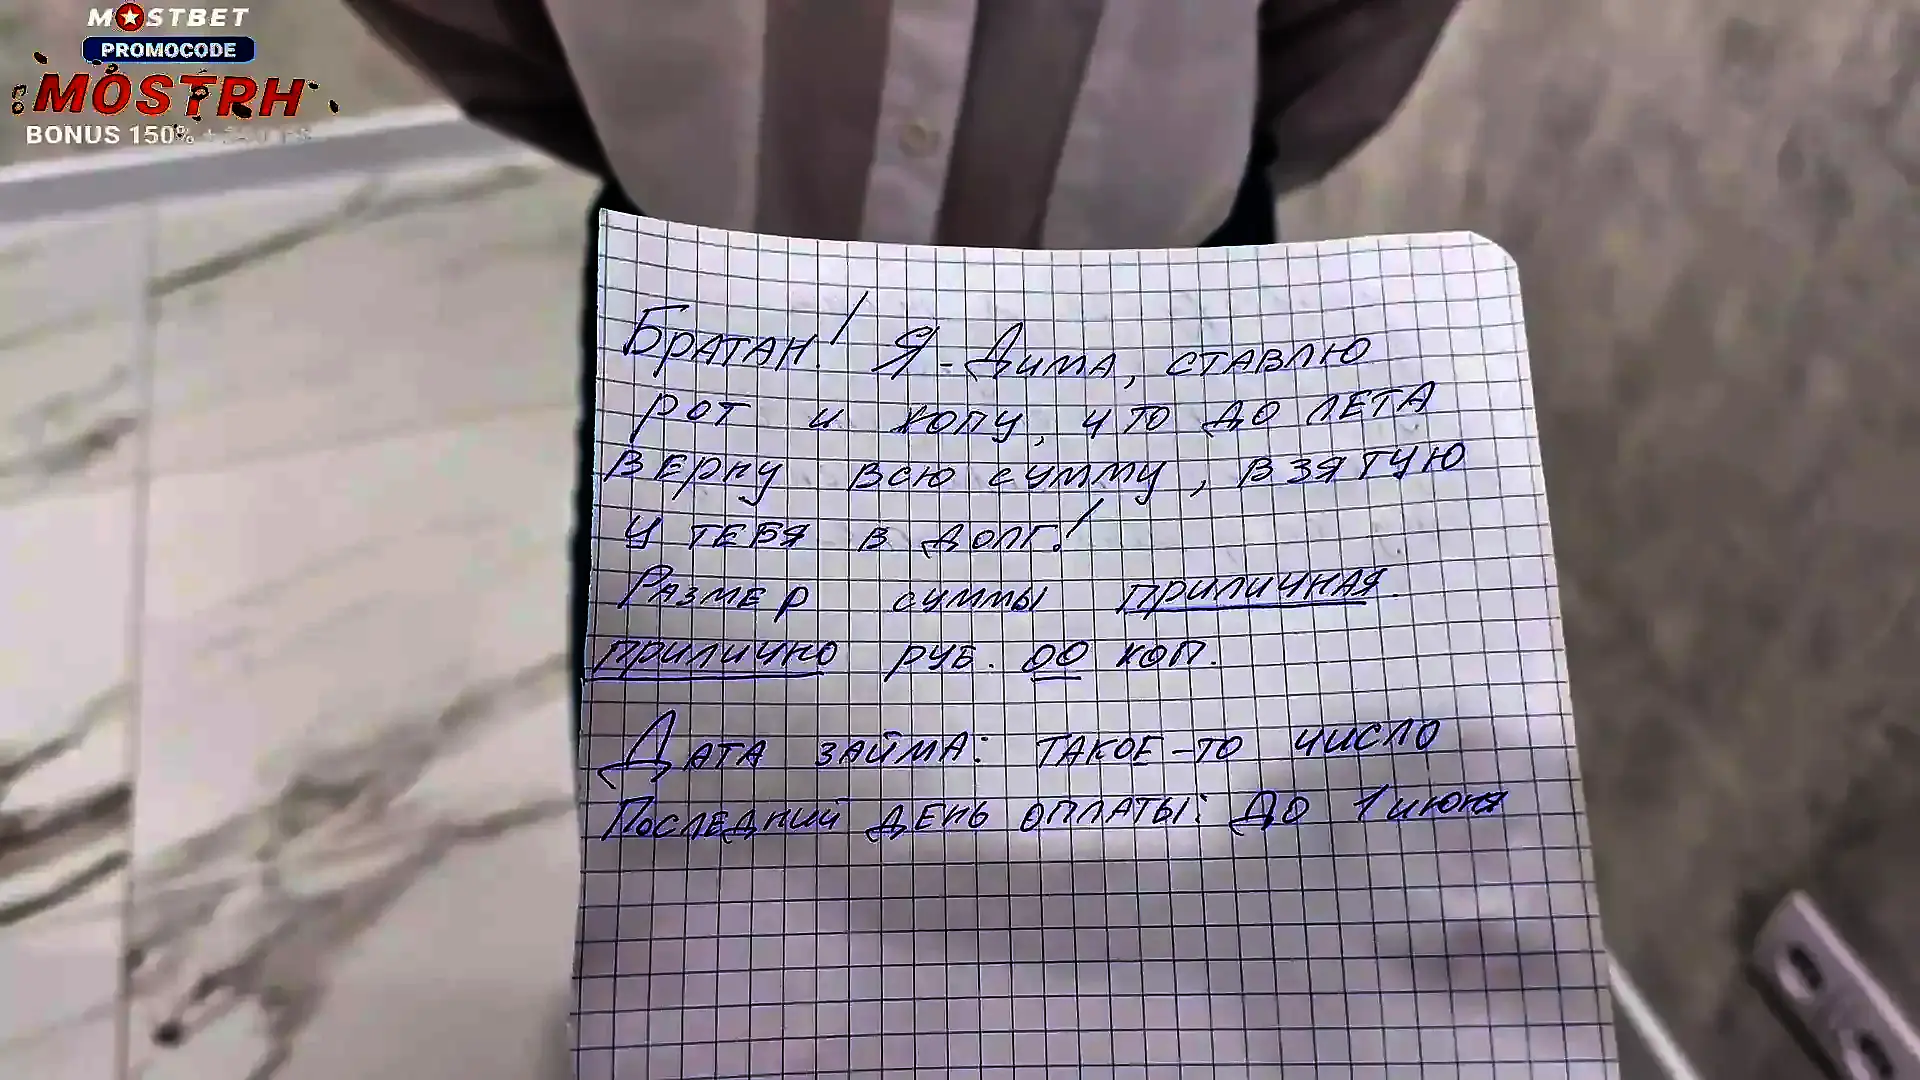 MOSTBET
PROMOCODE
MOSTRH
BONUS 150%
Братан! Я - Дима, ставлю
рот и жопу, что до лета
верну всю сумму, взятую
у тебя в долг!
Размер суммы приличная
прилично руб. 00 коп.
Дата займа: такое-то число
Последний день оплаты: До 1 июня